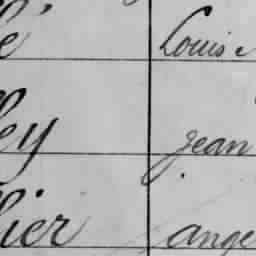 é Louis
ley Jean
lier ange